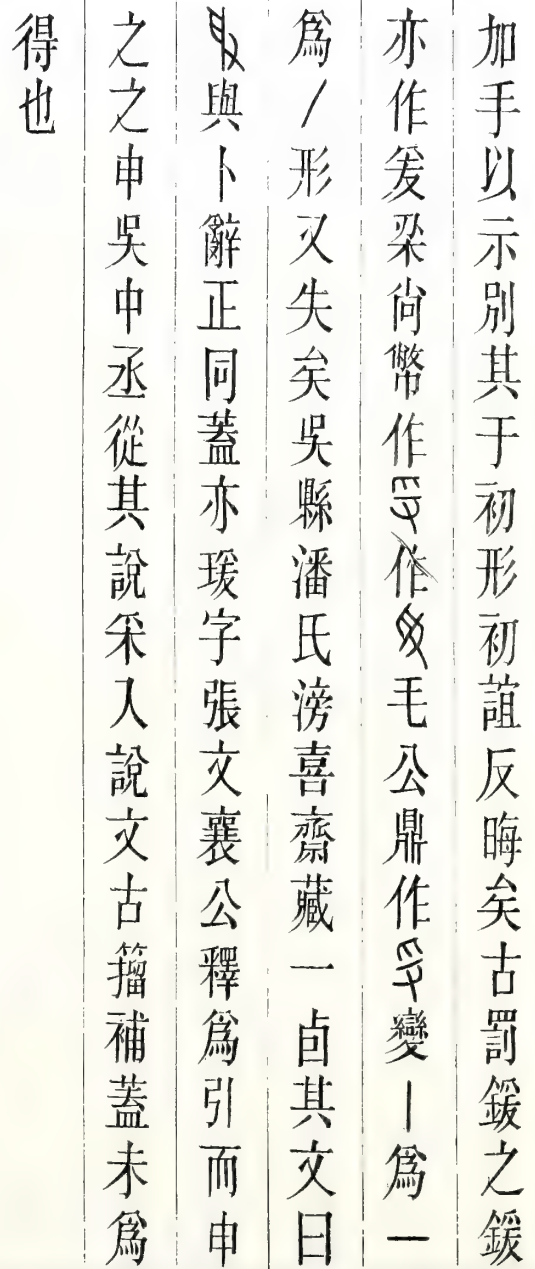 加手以示別其于初形初誼反晦矣古罰鍰之鍰
亦作爰梁尚幣作作毛公鼎作變丨爲一
爲丿形又失矣吳縣潘氏滂喜齋藏一卣其文曰
與卜辭正同蓋亦瑗字張文襄公釋爲引而申
之之申吳中丞從其說采入說文古籀補蓋未爲
得也